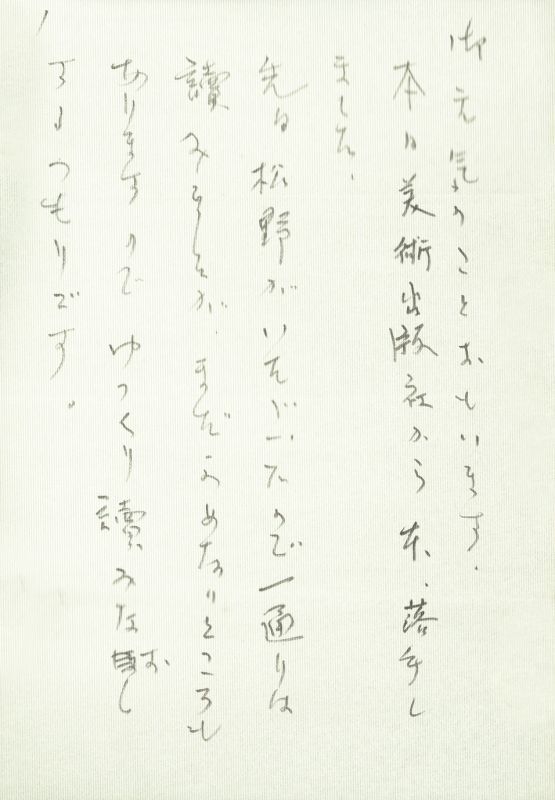 御元気のことおもいます。
本日美術出版社から本、落手し
ました、
先日松野がいそいだので一通りは
讀みましたが、まだよめないところも
ありますのでゆっくり讀みなおし
するつもりです。